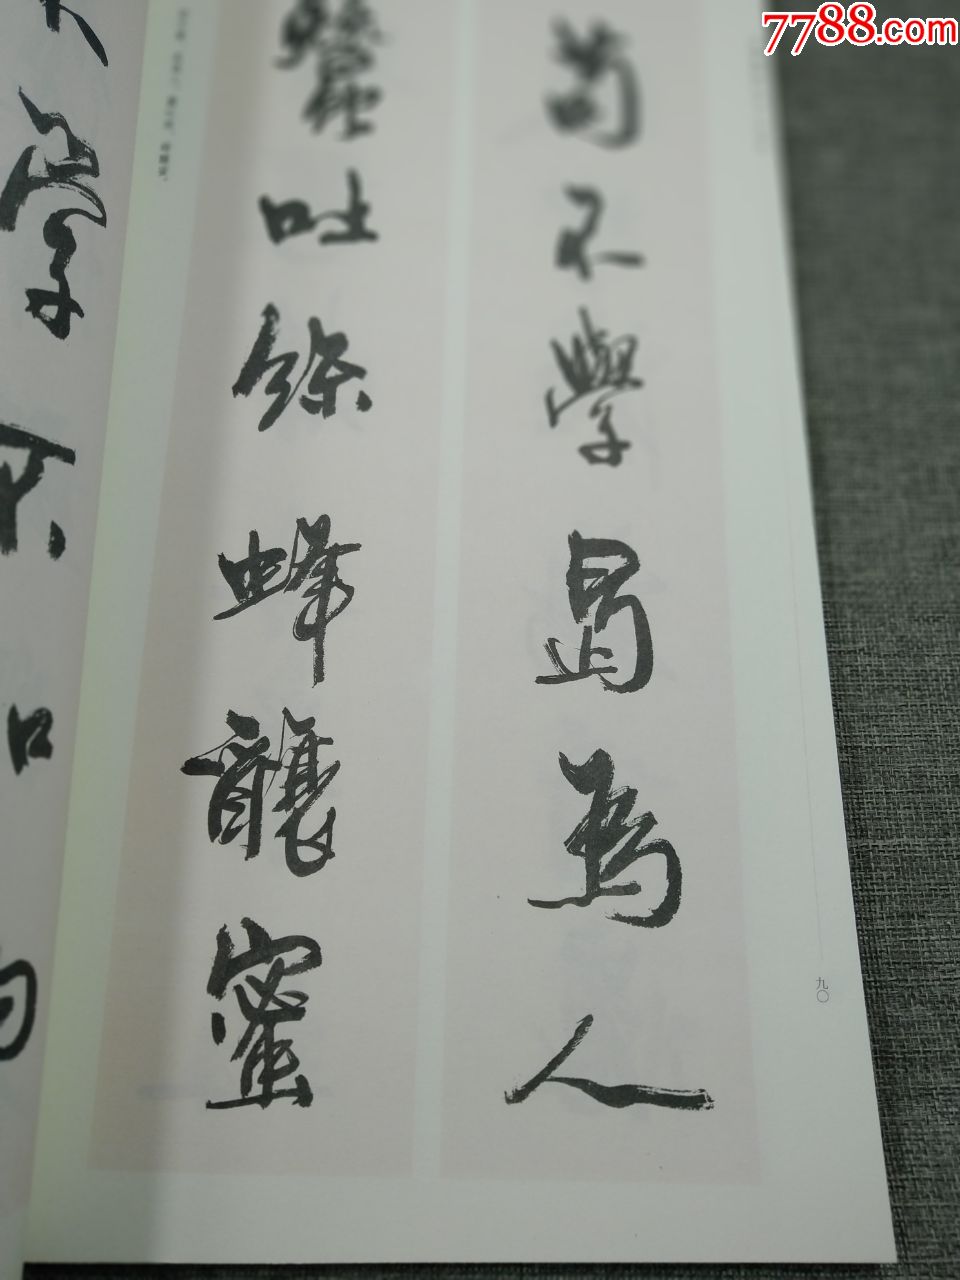 7788.com
苟不學曷為人
蠶吐絲蜂釀蜜
學不
九〇